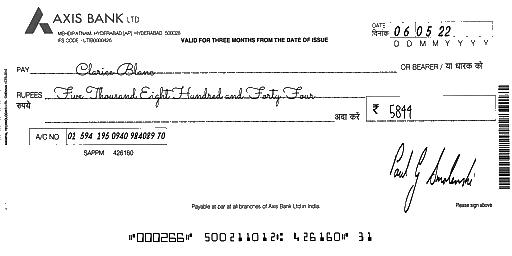 AXIS BANK LTD
MEHDIPATNAM, HYDERABAD (AP) HYDERABAD 500028
IFS CODE - UTIB0000426
VALID FOR THREE MONTHS FROM THE DATE OF ISSUE
DATE
दिनांक 06 05 22
D D M M Y Y Y Y
PAY Clarice Blanc OR BEARER / या धारक को
RUPEES Five Thousand Eight Hundred and Forty Four
रुपये अदा करें ₹ 5844
A/C NO 01 594 195 0940 984089 70
SAPPM 426160
Paul G Smolenski
Payable at par at all branches of Axis Bank Ltd in India.
Please sign above
⑈000266⑈ 500211012⑆ 426160⑈ 31